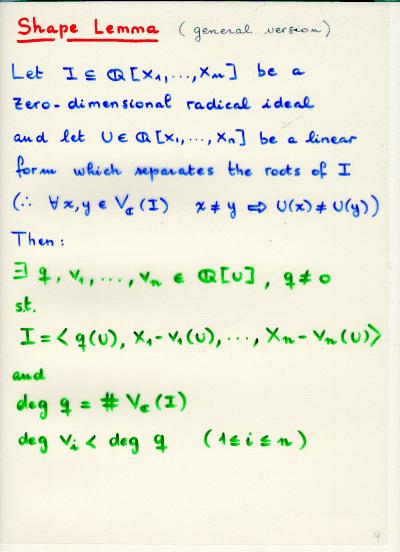 Shape Lemma (general version)
Let I ⊆ ℚ[X₁,...,Xₙ] be a
zero-dimensional radical ideal
and let U ∈ ℚ[X₁,...,Xₙ] be a linear
form which separates the roots of I
(∴ ∀x,y ∈ V_ℂ(I) x ≠ y ⇒ U(x) ≠ U(y))
Then:
∃ q, v₁,...,vₙ ∈ ℚ[U], q ≠ 0
s.t.
I = <q(U), X₁-v₁(U),..., Xₙ-vₙ(U)>
and
deg q = # V_ℂ(I)
deg vᵢ < deg q (1 ≤ i ≤ n)
9